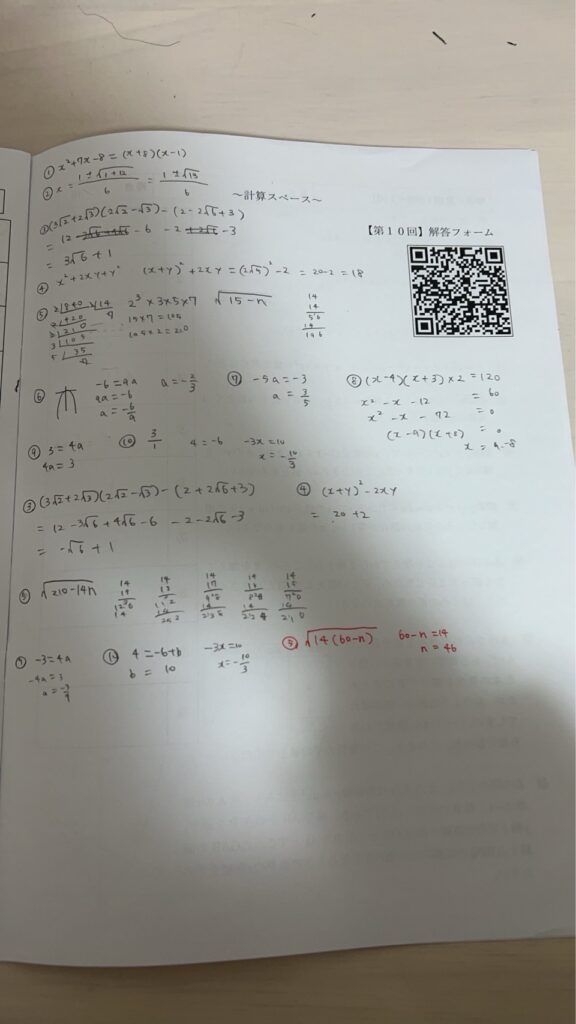 ① x²+7x-8 = (x+8)(x-1)
② x = 1±√1+12/6 = 1±√13/6
～計算スペース～
【第１０回】解答フォーム
③ (3√2+2√3)(2√2-√3) - (2-2√6+3)
= 12 -6 -2 -3
= 3√6+1
④ x²+2xy+y² (x+y)²+2xy = (2√5)²-2 = 20-2 = 18
⑤ 2)840 14 2³×3×5×7 √15-n
2)420 15×7=105
2)210 105×2=210
3)105
5)35
14
14
56
14
196
⑥ -6=9a a=-2/3
9a=-6
a=-6/9
⑦ -5a=-3
a=3/5
⑧ (x-4)(x+3)×2=120
x²-x-12 =60
x²-x-72 =0
(x-9)(x+8) =0
x=9,-8
⑨ 3=4a
4a=3
⑩ 3/1 4=-6 -3x=10
x=-10/3
③ (3√2+2√3)(2√2-√3) - (2+2√6+3)
= 12-3√6+4√6-6 -2-2√6-3
= -√6+1
④ (x+y)²-2xy
= 20+2
⑤ √210-14n
⑨ -3=4a
-4a=3
a=-3/4
⑩ 4=-6+b -3x=10
b=10 x=-10/3
⑤ √14(60-n) 60-n=14
n=46